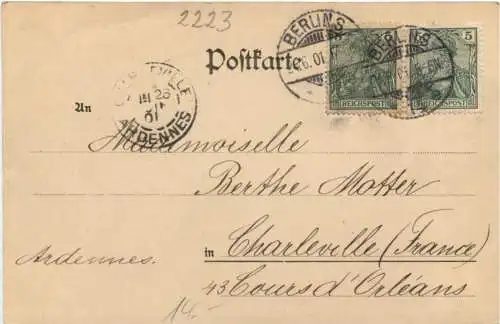 2223
BERLIN S
BERLIN S
5
REICHSPOST
REICHSPOST
Postkarte
ARDENNES
An
Mademoiselle
Berthe Motter
in Charleville (France)
Ardennes.
43 Cours d'Orléans
14.-